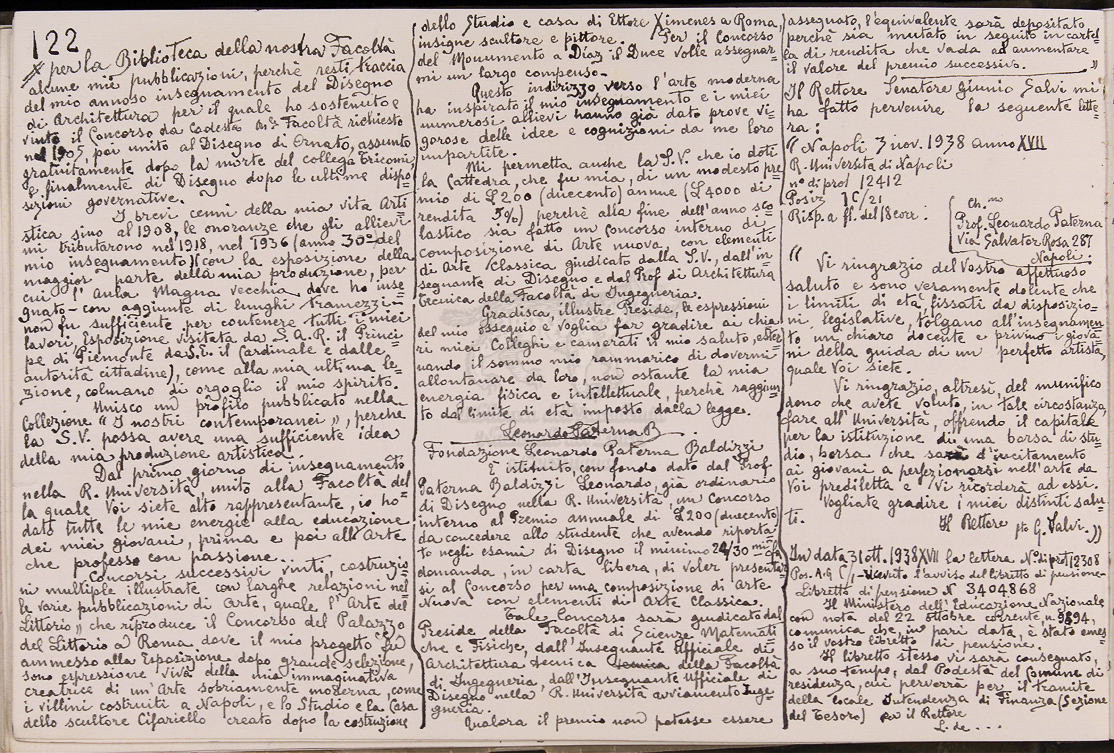 122
per la Biblioteca della nostra Facoltà
alcune mie pubblicazioni, perchè resti traccia
del mio annoso insegnamento del Disegno
di Architettura per il quale ho sostenuto e
vinto il Concorso da Cadesta Facoltà richiesto
nel 1905, poi unito al Disegno di Ornato, assunto
gratuitamente dopo la morte del collega Tricomi
e finalmente di Disegno dopo le ultime dispo=
sizioni governative.
I brevi cenni della mia vita Arti
stica sino al 1908, le onoranze che gli allievi
mi tributarono nel 1918, nel 1936 (anno 30º del
mio insegnamento) (con la esposizione della
maggior parte della mia produzione, per
cui l'Aula Magna vecchia dove ho inse=
gnato - con aggiunte di lunghi tramezzi -
non fu sufficiente per contenere tutti i miei
lavori, Esposizione visitata da S.A.R. il Princi=
pe di Piemonte da S.E. il Cardinale e dalle
autorità cittadine), come alla mia ultima le=
zione, colmano di orgoglio il mio spirito.
Unisco un profilo pubblicato nella
Collezione "I nostri contemporanei", perchè
la S.V. possa avere una sufficiente idea
della mia produzione artistica.
Dal primo giorno di insegnamento
nella R. Università, unito alla Facoltà del
la quale Voi siete alto rappresentante, io ho=
dato tutte le mie energie alla educazione
dei miei giovani, prima e poi all'Arte
che professo con passione.
Concorsi successivi vinti, costruzio=
ni multiple illustrate con larghe relazioni nel=
le varie pubblicazioni di Arte, quale l'Arte del
Littorio" che riproduce il Concorso del Palazzo
del Littorio a Roma, dove il mio progetto fu
ammesso alla Esposizione dopo grande selezione,
sono espressione viva della mia immaginativa
creatrice di un'Arte sobriamente moderna, come
i villini costruiti a Napoli, e lo Studio e la Casa
dello scultore Cifariello creato dopo la costruzione
dello Studio e casa di Ettore Ximenes a Roma,
insigne scultore e pittore. Per il Concorso
del Monumento a Diaz il Duce volle assegnar=
mi un largo compenso.
Questo indirizzo verso l'arte moderna
ha inspirato il mio insegnamento e i miei
numerosi allievi hanno già dato prove vi=
gorose delle idee e cognizioni da me loro
impartite.
Mi permetta anche la S.V. che io doti
la Cattedra, che fu mia, di un modesto pre=
mio di £ 200 (duecento) annue (£ 4000 di
rendita 5%) perchè alla fine dell'anno sco
lastico sia fatto un concorso interno di
composizione di Arte nuova, con elementi
di Arte Classica giudicato dalla S.V., dall'in=
segnante di Disegno e dal Prof di Architettura
tecnica della Facoltà di Ingegneria.
Gradisca, illustre Preside, le espressioni
del mio ossequio e Voglia far gradire ai chia
ri miei Colleghi e camerati il mio saluto, ester
nando il sommo mio rammarico di dovermi
allontanare da loro, non ostante la mia
energia fisica e intellettuale, perchè raggiun
to dal limite di età imposto dalla legge.
Leonardo Paterna B
Fondazione Leonardo Paterna Baldizzi
È istituito, con fondo dato dal Prof
Paterna Baldizzi Leonardo, già ordinario
di Disegno nella R. Università, un Concorso
interno al Premio annuale di £ 200 (duecento)
da concedere allo studente che avendo riporta=
to negli esami di Disegno il minimo 24/30 mi fa
domanda, in carta libera, di voler presentar
si al Concorso per una composizione di Arte
Nuova con elementi di Arte Classica.
Tale Concorso sarà giudicato dal
Preside della Facoltà di Scienze Matemati
che e Fisiche, dall'Insegnante Ufficiale di
Architettura tecnica tecnica della Facoltà
di Ingegneria, dall'Insegnante Ufficiale di
Disegno nella R. Università avviamento Inge
gneria.
Qualora il premio non potesse essere
assegnato, l'equivalente sarà depositato,
perchè sia mutato in seguito in cartel=
la di rendita che vada ad aumentare
il valore del premio successivo. "
Il Rettore Senatore Giunio Salvi mi
ha fatto pervenire la seguente lette
ra:
"Napoli 3 nov. 1938 anno XVII
R. Università di Napoli
nº di prot 12412
Posiz I C/21
Risp. a fl. del 18 corr:
Ch.mo
Prof. Leonardo Paterna
Via Salvator Rosa 287
Napoli
" Vi ringrazio del Vostro affettuoso
saluto e sono veramente dolente che
i limiti di età, fissati da disposizio=
ni legislative, tolgano all'insegnamen=
to un chiaro docente e privino i giova=
ni della guida di un perfetto artista,
quale Voi siete.
Vi ringrazio, altresì, del munifico
dono che avete voluto, in tale circostanza,
fare all'Università, offrendo il capitale
per la istituzione di una borsa di stu=
dio, borsa che sarà d'incitamento
ai giovani a perfezionarsi nell'arte da
Voi prediletta e Vi ricorderà ad essi.
Vogliate gradire i miei distinti salu=
ti.
Il Rettore fto G. Salvi. ))
In data 31 ott. 1938 XVII la lettera Nº di prot 12308
Pos. A.G ricevito l'avviso del libretto di pensione-
Libretto di pensione Nº 3404868
Il Ministero dell'Educazione Nazionale
con nota del 22 ottobre corrente n. 9894,
comunica che, in pari data, è stato emes=
so il vostro libretto di pensione.
Il libretto stesso vi sarà consegnato,
a suo tempo, dal Podestà del Comune di
residenza, cui perverrà per il tramite
della locale Intendenza di Finanza (Sezione
del Tesoro) per il Rettore